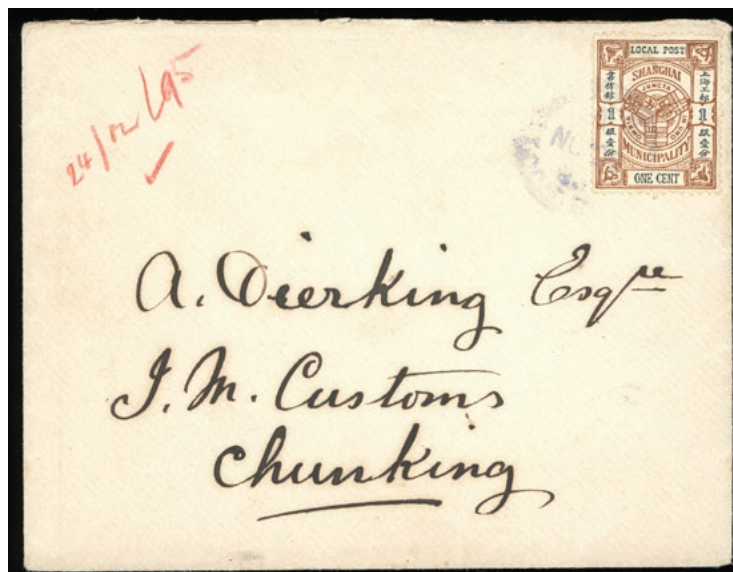 24/12/95
LOCAL POST
SHANGHAI
MUNICIPALITY
ONE CENT
書信館
上海工部
1
1
銀壹分
銀壹分
NO
A. Dierking Esqre
I. M. Customs
Chunking